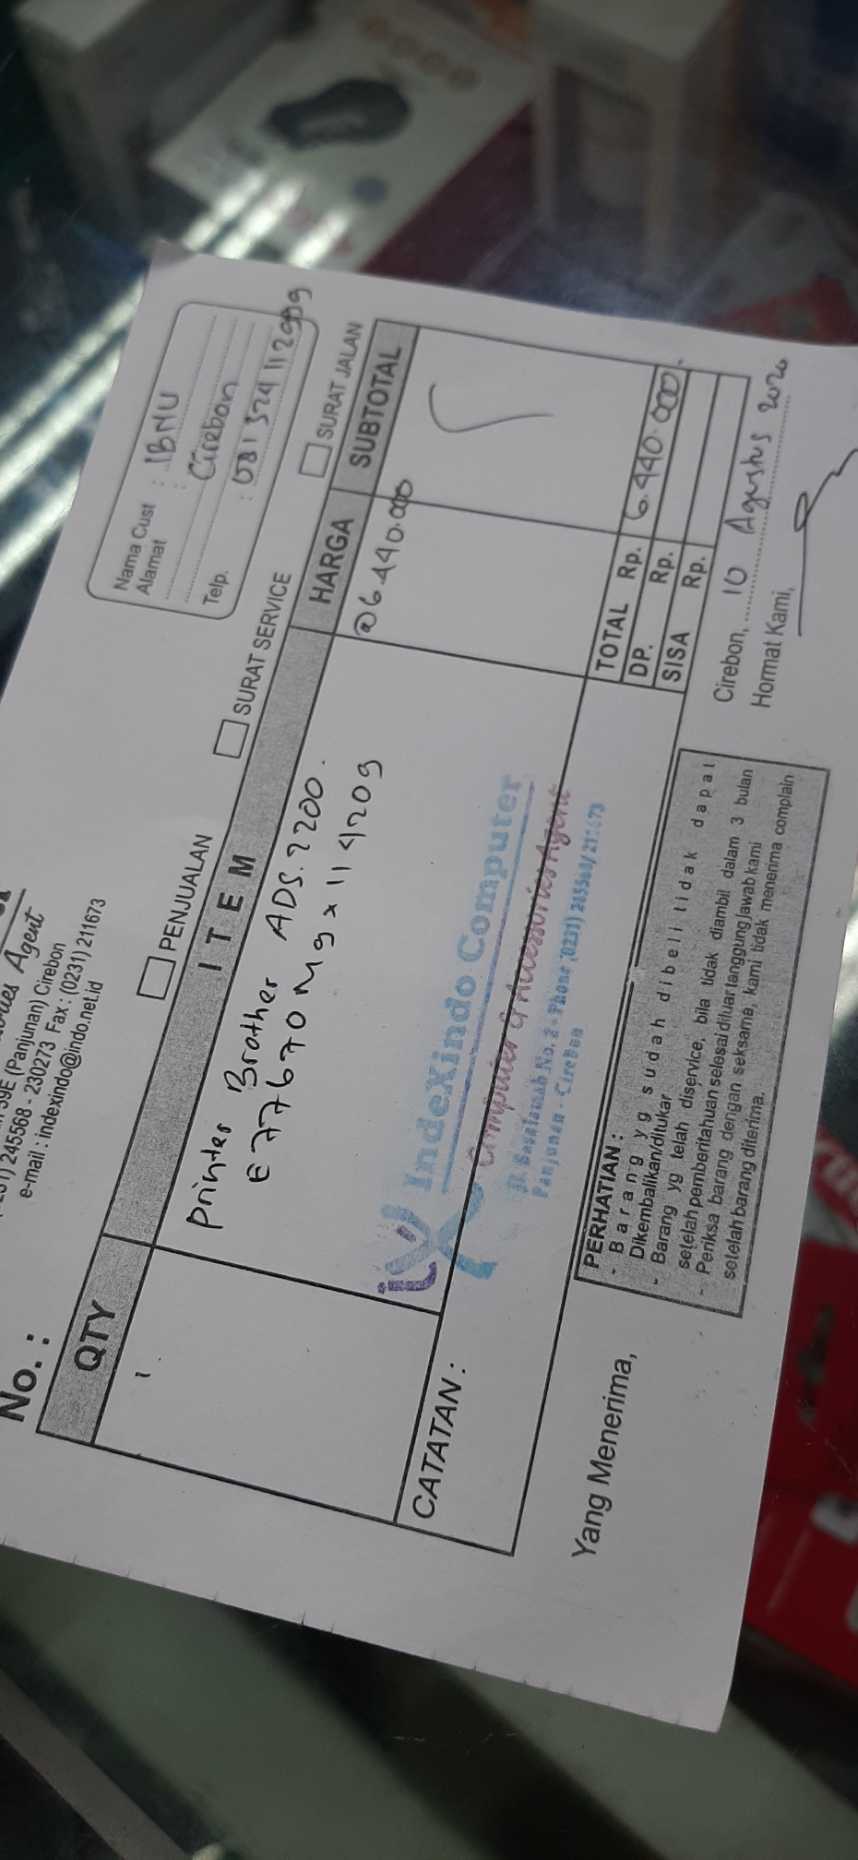 ories Agent
39E (Panjunan) Cirebon
245568 - 230273 Fax : (0231) 211673
e-mail : indexindo@indo.net.id
Nama Cust : IBNU
Alamat : Cirebon
Telp. :
No. :
PENJUALAN
SURAT SERVICE
SURAT JALAN
QTY ITEM HARGA SUBTOTAL
1 Printer Brother ADS.2200. @6.440.000
CATATAN :
IndeXindo Computer
Computer & Accessories Agent
Panjunan - Cirebon
TOTAL Rp. 6.440.000.
DP. Rp.
SISA Rp.
PERHATIAN :
- Barang yg sudah dibeli tidak dapat
Dikembalikan/ditukar
- Barang yg telah diservice, bila tidak diambil dalam 3 bulan
setelah pemberitahuan selesai diluar tanggung jawab kami
- Periksa barang dengan seksama, kami tidak menerima complain
setelah barang diterima.
Yang Menerima,
Cirebon, 10 Agustus 2020
Hormat Kami,